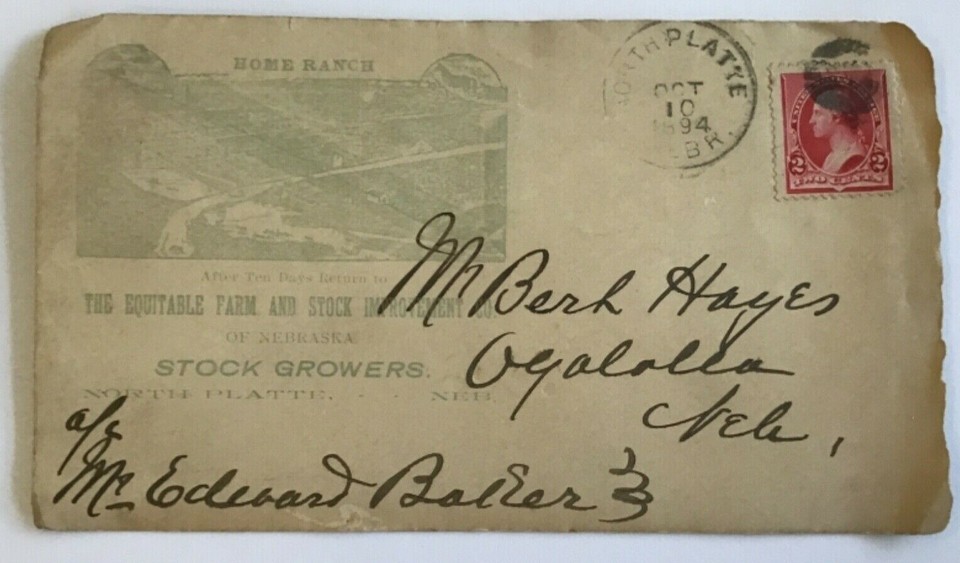 HOME RANCH
NORTH PLATTE
OCT
10
1894
NEBR.
UNITED STATES
2 2
TWO CENTS
After Ten Days Return to
THE EQUITABLE FARM AND STOCK IMPROVEMENT CO.
OF NEBRASKA
STOCK GROWERS.
NORTH PLATTE, - - NEB.
Mr Bert Hayes
Ogalalla
Neb,
a/c
Mr Edward Baker